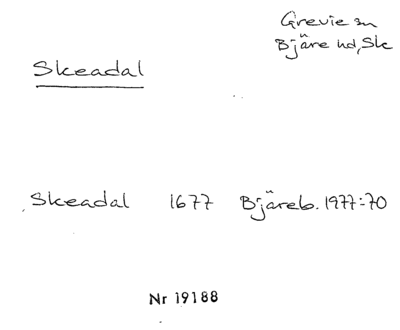 Grevie sn
Bjäre hd, Sk
Skeadal
Skeadal 1677 Bjäreb. 1977:70
Nr 19188